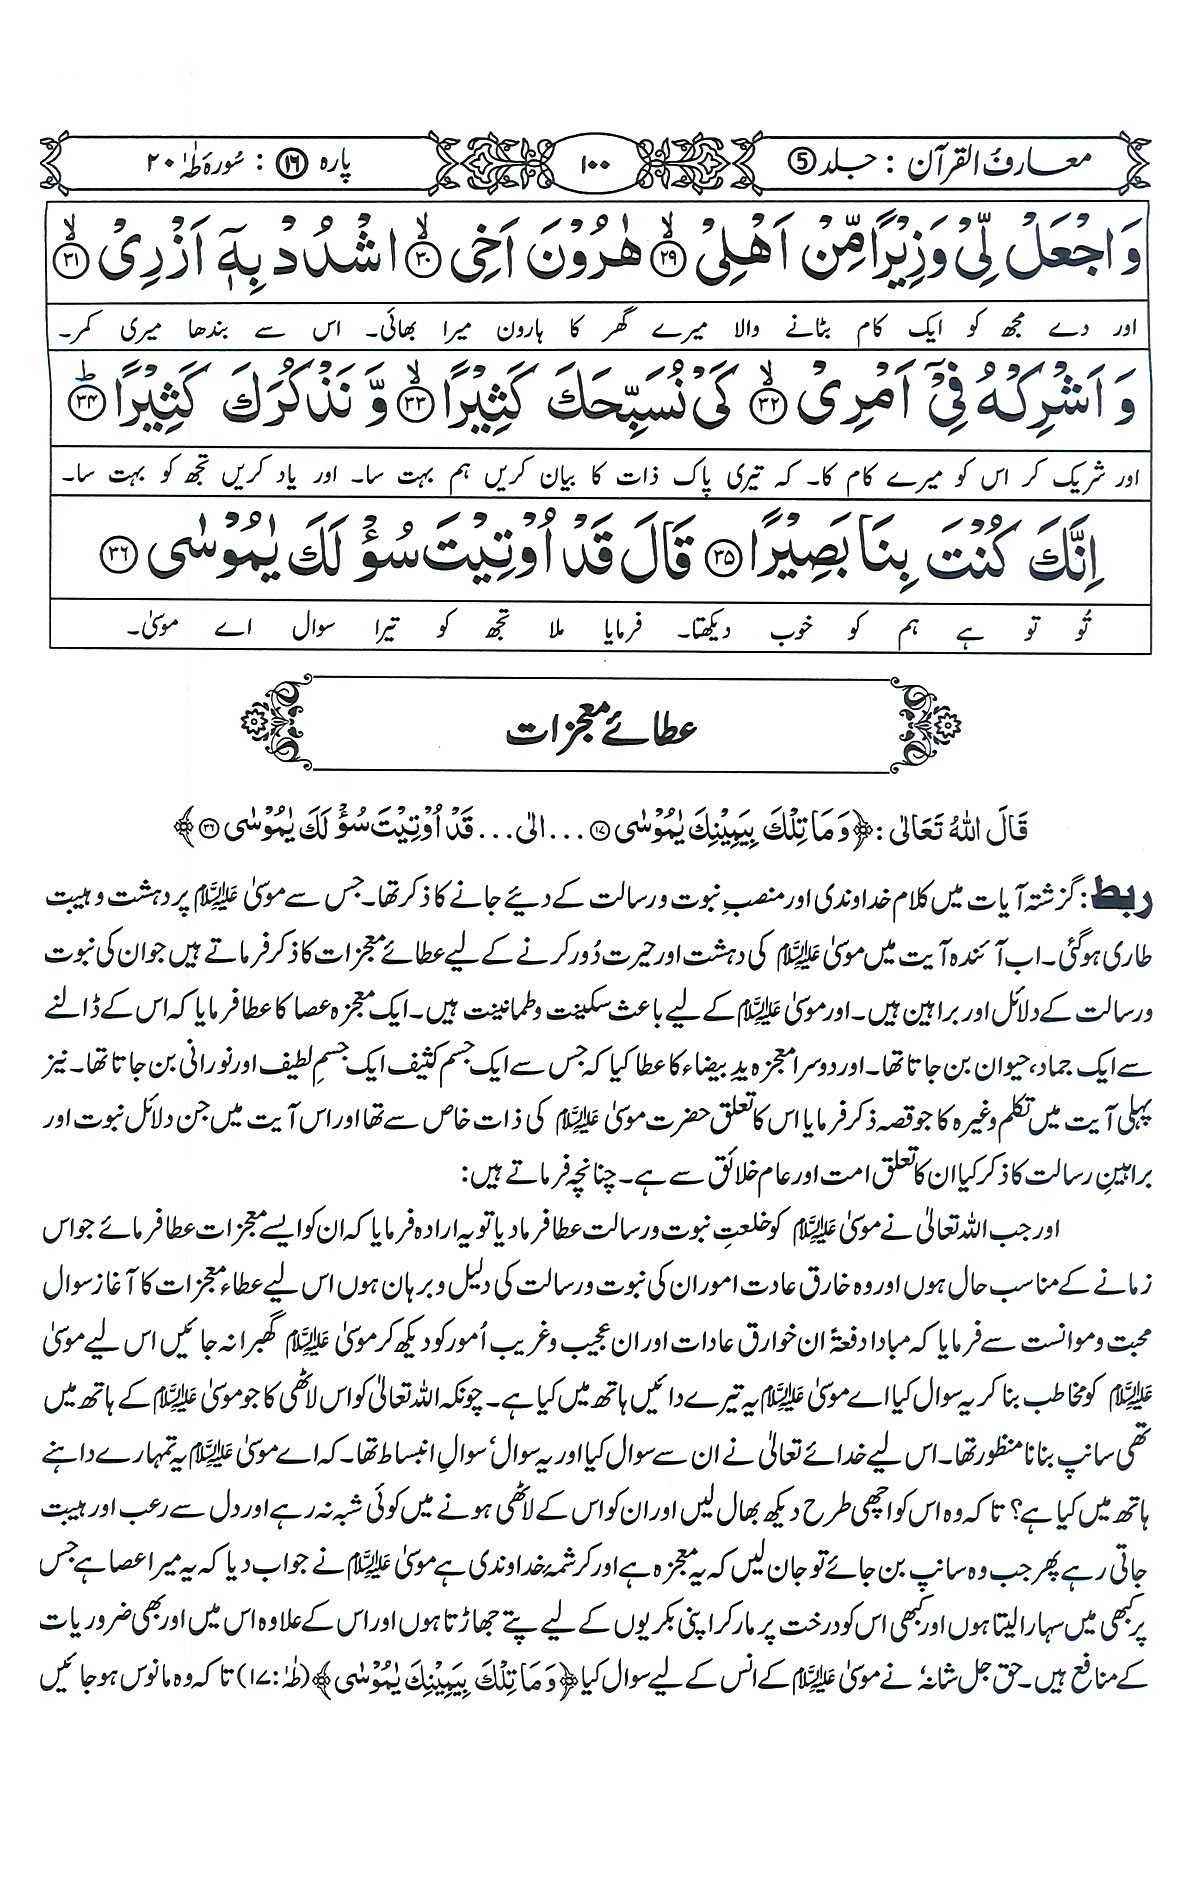 معارفُ القرآن : جلد ⑤ ۱۰۰ پارہ ⑯ : سُورۃ طٰہٰ ۲۰
وَاجْعَلْ لِّیْ وَزِیْرًا مِّنْ اَهْلِیْ ﴿۲۹﴾ هٰرُوْنَ اَخِی ﴿۳۰﴾ اشْدُدْ بِهٖۤ اَزْرِیْ ﴿۳۱﴾
اور دے مجھ کو ایک کام بٹانے والا میرے گھر کا ہارون میرا بھائی۔ اس سے بندھا میری کمر۔
وَ اَشْرِكْهُ فِیْۤ اَمْرِیْ ﴿۳۲﴾ كَیْ نُسَبِّحَكَ كَثِیْرًا ﴿۳۳﴾ وَّ نَذْكُرَكَ كَثِیْرًا ﴿۳۴﴾ؕ
اور شریک کر اس کو میرے کام کا۔ کہ تیری پاک ذات کا بیان کریں ہم بہت سا۔ اور یاد کریں تجھ کو بہت سا۔
اِنَّكَ كُنْتَ بِنَا بَصِیْرًا ﴿۳۵﴾ قَالَ قَدْ اُوْتِیْتَ سُؤْلَكَ یٰمُوْسٰی ﴿۳۶﴾
تُو تو ہے ہم کو خوب دیکھتا۔ فرمایا ملا تجھ کو تیرا سوال اے موسیٰ۔
عطائے معجزات
قَالَ اللهُ تَعَالٰی : ﴿وَمَا تِلْكَ بِیَمِیْنِكَ یٰمُوْسٰی ⑰ ... الی ... قَدْ اُوْتِیْتَ سُؤْلَكَ یٰمُوْسٰی ㊱﴾
ربط : گزشتہ آیات میں کلام خداوندی اور منصبِ نبوت ورسالت کے دیئے جانے کا ذکر تھا۔ جس سے موسیٰ علیہ السلام پر دہشت وہیبت
طاری ہوگئی۔ اب آئندہ آیت میں موسیٰ علیہ السلام کی دہشت اور حیرت دُور کرنے کے لیے عطائے معجزات کا ذکر فرماتے ہیں جو ان کی نبوت
ورسالت کے دلائل اور براہین ہیں۔ اور موسیٰ علیہ السلام کے لیے باعث سکینت وطمانینت ہیں۔ ایک معجزہ عصا کا عطا فرمایا کہ اس کے ڈالنے
سے ایک جماد، حیوان بن جاتا تھا۔ اور دوسرا معجزہ یدِ بیضاء کا عطا کیا کہ جس سے ایک جسم کثیف ایک جسمِ لطیف اور نورانی بن جاتا تھا۔ نیز
پہلی آیت میں تکلم وغیرہ کا جو قصہ ذکر فرمایا اس کا تعلق حضرت موسیٰ علیہ السلام کی ذات خاص سے تھا اور اس آیت میں جن دلائل نبوت اور
براہینِ رسالت کا ذکر کیا ان کا تعلق امت اور عام خلائق سے ہے۔ چنانچہ فرماتے ہیں:
اور جب اللہ تعالیٰ نے موسیٰ علیہ السلام کو خلعتِ نبوت ورسالت عطا فرما دیا تو یہ ارادہ فرمایا کہ ان کو ایسے معجزات عطا فرمائے جو اس
زمانے کے مناسب حال ہوں اور وہ خارق عادت امور ان کی نبوت ورسالت کی دلیل وبرہان ہوں اس لیے عطاء معجزات کا آغاز سوال
محبت وموانست سے فرمایا کہ مبادا دفعۃً ان خوارق عادات اور ان عجیب وغریب اُمور کو دیکھ کر موسیٰ علیہ السلام گھبرا نہ جائیں اس لیے موسیٰ
علیہ السلام کو مخاطب بنا کر یہ سوال کیا اے موسیٰ علیہ السلام یہ تیرے دائیں ہاتھ میں کیا ہے۔ چونکہ اللہ تعالیٰ کو اس لاٹھی کا جو موسیٰ علیہ السلام کے ہاتھ میں
تھی سانپ بنانا منظور تھا۔ اس لیے خدائے تعالیٰ نے ان سے سوال کیا اور یہ سوال، سوالِ انبساط تھا۔ کہ اے موسیٰ علیہ السلام یہ تمہارے داہنے
ہاتھ میں کیا ہے؟ تاکہ وہ اس کو اچھی طرح دیکھ بھال لیں اور ان کو اس کے لاٹھی ہونے میں کوئی شبہ نہ رہے اور دل سے رعب اور ہیبت
جاتی رہے پھر جب وہ سانپ بن جائے تو جان لیں کہ یہ معجزہ ہے اور کرشمۂ خداوندی ہے موسیٰ علیہ السلام نے جواب دیا کہ یہ میرا عصا ہے جس
پر کبھی میں سہارا لیتا ہوں اور کبھی اس کو درخت پر مار کر اپنی بکریوں کے لیے پتے جھاڑتا ہوں اور اس کے علاوہ اس میں اور بھی ضروریات
کے منافع ہیں۔ حق جل شانہٗ نے موسیٰ علیہ السلام کے انس کے لیے سوال کیا ﴿وَمَا تِلْكَ بِیَمِیْنِكَ یٰمُوْسٰی﴾ (طٰہٰ: ۱۷) تاکہ وہ مانوس ہو جائیں